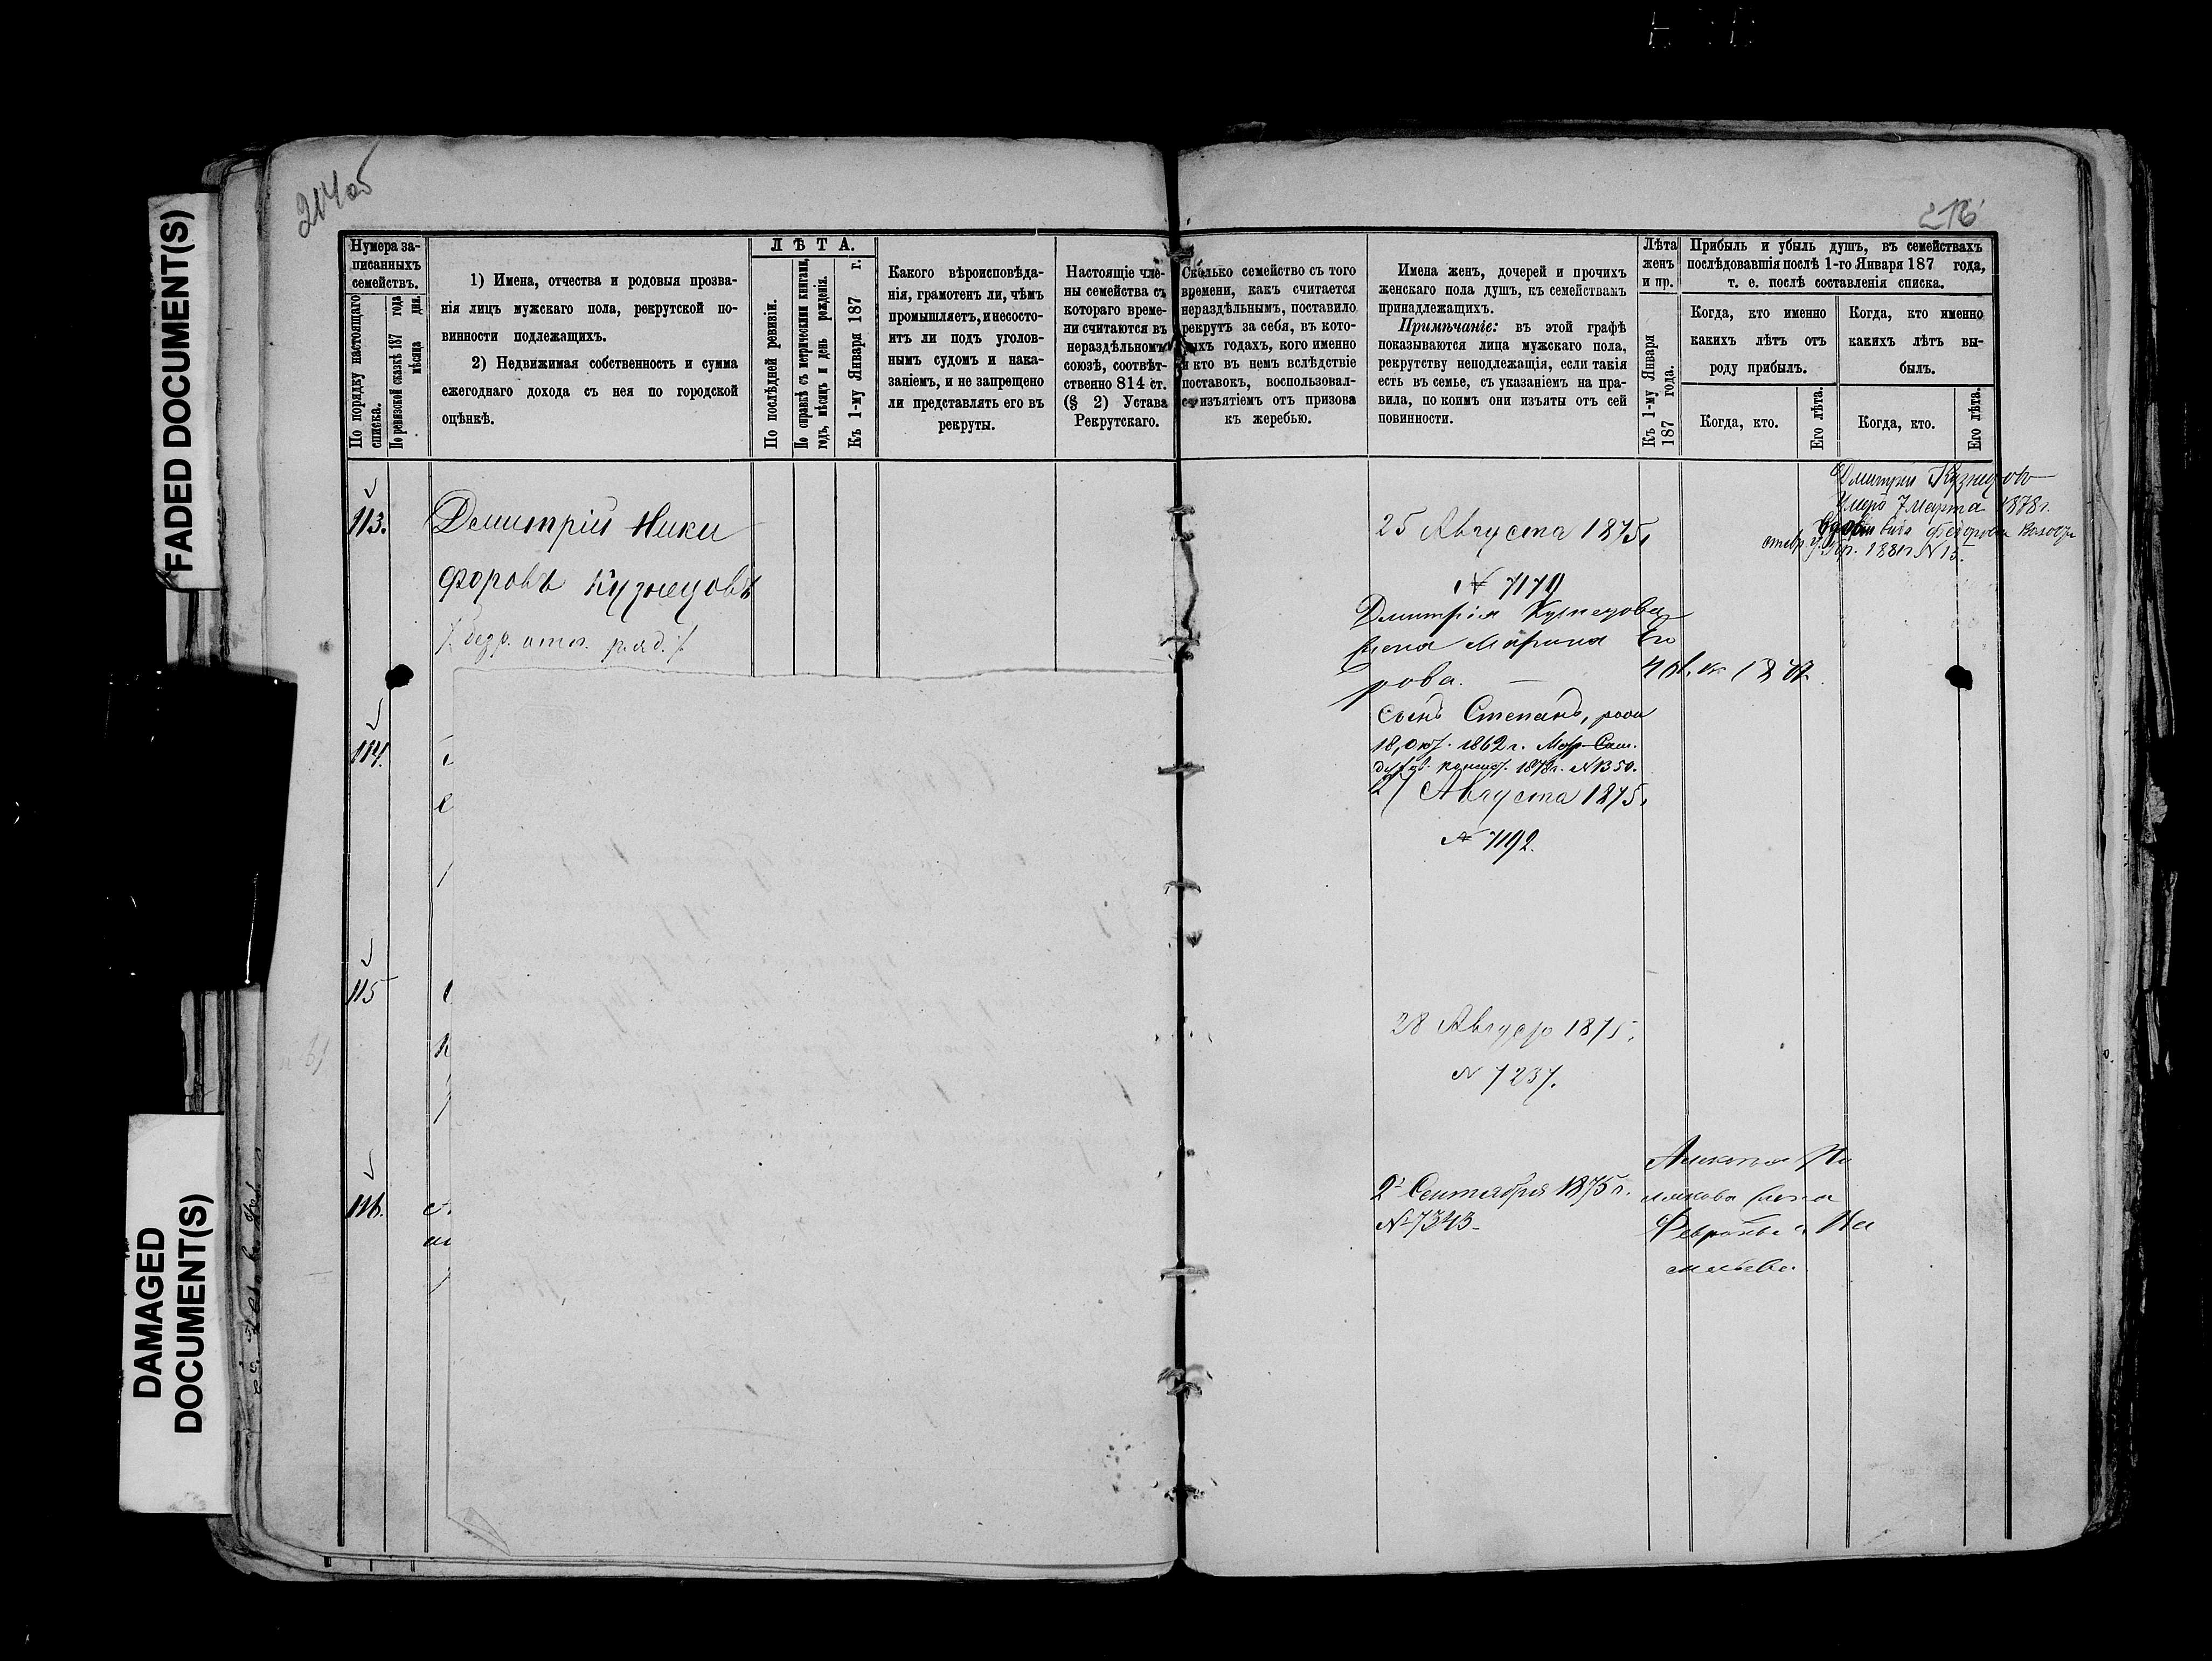 FADED DOCUMENT(S)
DAMAGED
DOCUMENT(S)
214об
216
Нумера за-
писанныхъ
семействъ.
По порядку настоящаго
списка.
По ревизской сказкѣ 187 года
мѣсяца дня.
1) Имена, отчества и родовыя прозва-
нія лицъ мужскаго пола, рекрутской по-
винности подлежащихъ.
2) Недвижимая собственность и сумма
ежегоднаго дохода съ нея по городской
оцѣнкѣ.
ЛѢТА.
По послѣдней ревизіи.
По справкѣ съ метрическими книгами,
годъ, мѣсяцъ и день рожденія.
Къ 1-му Января 187 г.
Какого вѣроисповѣда-
нія, грамотенъ ли, чѣмъ
промышляетъ, и несосто-
итъ ли подъ уголов-
нымъ судомъ и нака-
заніемъ, и не запрещено
ли представлять его въ
рекруты.
Настоящіе чле-
ны семейства съ
котораго време-
ни считаются въ
нераздѣльномъ
союзѣ, соотвѣт-
ственно 814 ст.
(§ 2) Устава
Рекрутскаго.
Сколько семейство съ того
времени, какъ считается
нераздѣльнымъ, поставило
рекрутъ за себя, въ кото-
рыхъ годахъ, кого именно
и кто въ немъ вслѣдствіе
поставокъ, воспользовал-
ся изъятіемъ отъ призова
къ жеребью.
Имена женъ, дочерей и прочихъ
женскаго пола душъ, къ семействамъ
принадлежащихъ.
Примѣчаніе: въ этой графѣ
показываются лица мужскаго пола,
рекрутству неподлежащія, если такія
есть въ семье, съ указаніемъ на пра-
вила, по коимъ они изъяты отъ сей
повинности.
Лѣта
женъ
и пр.
Къ 1-му Января
187 года.
Прибыль и убыль душъ, въ семействахъ
послѣдовавшія послѣ 1-го Января 187 года,
т. е. послѣ составленія списка.
Когда, кто именно
какихъ лѣтъ отъ
роду прибылъ.
Когда, кто.
Его лѣта.
Когда, кто именно
какихъ лѣтъ вы-
былъ.
Когда, кто.
Его лѣта.
113.
Демитрій Ники
форовъ Кузнецовъ
25 Августа 1875
№ 7179
Дмитрія Кузнецова
жена Марина Его
рова.
сынъ Степанъ,
18, 1862 г.
1878г. №1350.
Кузнецовъ
Умеръ 7 Марта 1878г.
1881г №15.
114.
27 Августа 1875
№ 7192.
115
28 1875
№ 7237.
116.
2 Сентября 1875 г.
№ 7343
жена